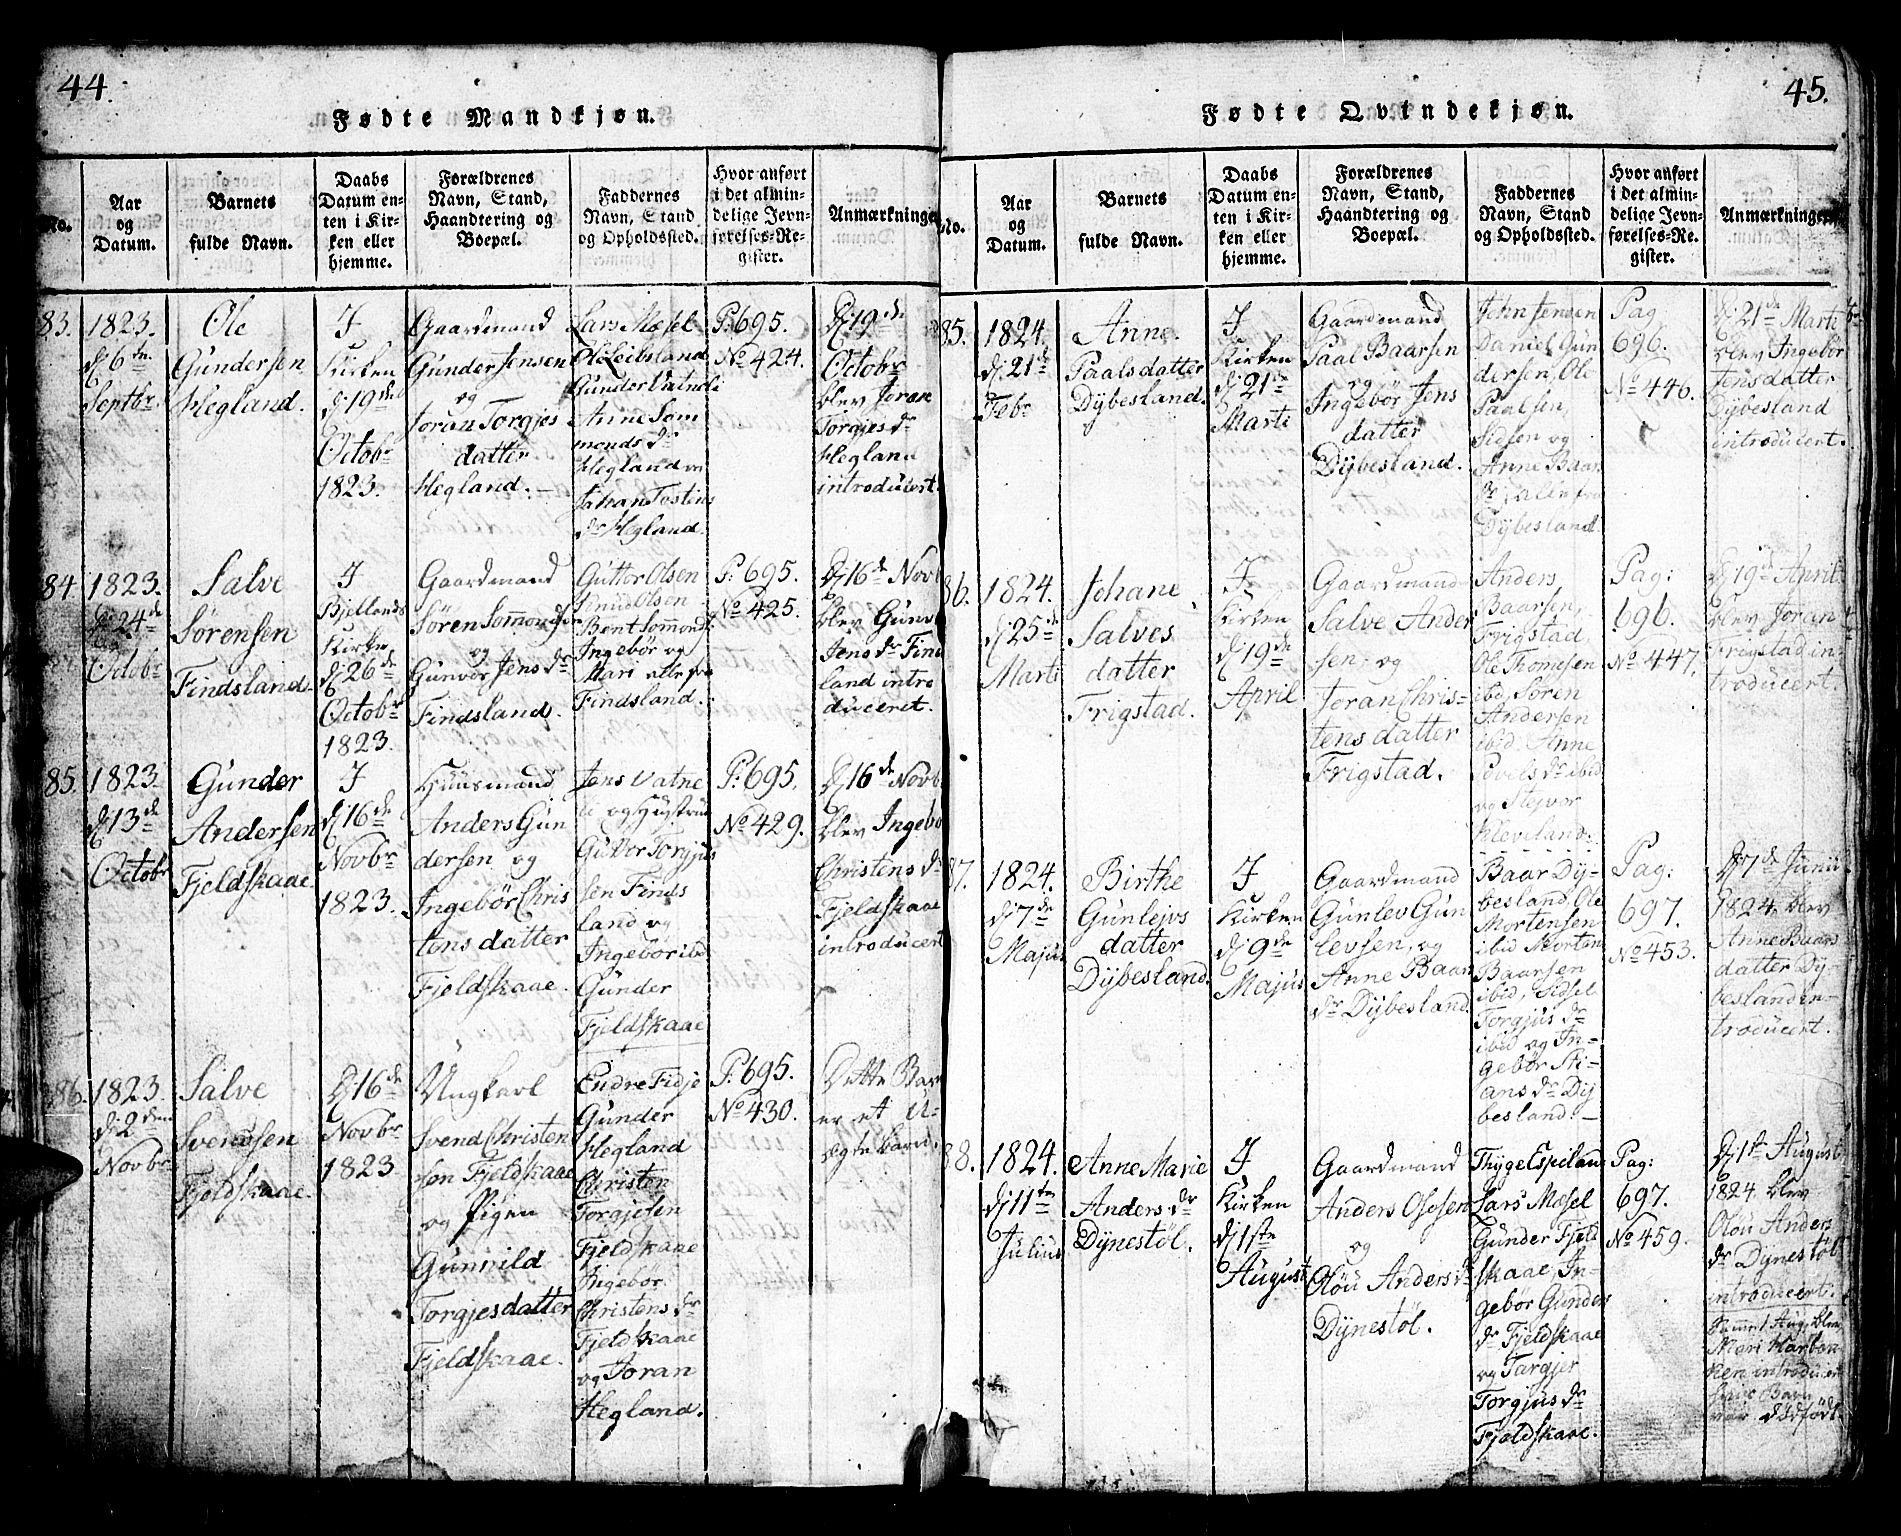 44.
Fødte Mandkjøn.
No.
Aar
og
Datum.
Barnets
fulde Navn.
Daabs
Datum en-
ten i Kir-
ken eller
hjemme.
Forældrenes
Navn, Stand,
Haandtering og
Boepæl.
Faddernes
Navn, Stand
og Opholdssted.
Hvor anført
i det almin-
delige Jevn-
førelses-Re-
gister.
Anmærkninger
83.
1823.
dj 6de
Septbr.
Ole
Gundersen
Hegland.
I
Kirken
dj 19de
Octobr
1823.
Gaardmand
Gunder Jensen
og
Joran Torgjes
datter
Hegland.
Lars Mosel
Ole Leibsland
Gunder Vatneli
Anne Som
monds dr
Hegland
Johan Tostins
dr Hegland.
P: 695.
No 424.
Dj 19de
Octobr
blev Joran
Torgjes dr
Hegland
introducert.
84.
1823.
24de
Octobr
Salve
Sørensen
Findsland.
I
Bjellands
Kirke
dj 26de
Octobr
1823.
Gaardmand
Søren Sommonds
og
Gunvor Jens dr
Findsland.
Guttor Olsen
Knud Olsen
Bent Sommonds
Ingebør og
Mari alle fra
Findsland.
P: 695.
No 425.
Dj 16de Novb
blev Gunv
Jens dr Find
land intro
duceret.
85.
1823.
dj 13de
Octobr
Gunder
Andersen
Fjeldskaae.
I
dj 16de
Novbr
1823.
Huusmand
Anders Gun
dersen og
Ingebør Chris
tens datter
Fjeldskaae.
Jens Vatne
li og Hustrue
Guttor Torgjus
sen Finds
land og
Ingebør ibd
Gunder
Fjeldskaae
P: 695.
No 429.
Dj 16de Novb
blev Ingebø
Christens dr
Fjeldskaae
introducert
86.
1823.
dj 2den
Novbr
Salve
Svendsen
Fjeldskaae.
Dj 16de
Novbr
1823
Ungkarl
Svend Christen
sen Fjeldskaae
og Pigen
Gunnild
Torgjesdatter
Fjeldskaae.
Endre Fidje
Gunder
Hegland
Christen
Torgjesen
Fjeldskaae
Ingebør
Christens dr
Fjeldskaae
og Joran
Hegland.
P: 695.
No 430.
Dette Bar
er et U-
ægte barn.
45.
Fødte Qvindekjøn.
No.
Aar
og
Datum.
Barnets
fulde Navn.
Daabs
Datum en-
ten i Kir-
ken eller
hjemme.
Forældrenes
Navn, Stand,
Haandtering og
Boepæl.
Faddernes
Navn, Stand
og Opholdssted.
Hvor anført
i det almin-
delige Jevn-
førelses-Re-
gister.
Anmærkninger
85.
1824.
dj 21de
Febr
Anne
Paalsdatter
Dÿbesland.
I
Kirken
dj 21de
Marti
Gaardmand
Paal Baarsen
og
Ingebør Jens
datter
Dÿbesland.
John Jensen
Daniel Gun
dersen, Ole
Paalsen,
Sidsen og
Anne Baars
dr alle fra
Dÿbesland
Pag
696.
No 446.
Dj 21de Marti
blev Ingebør
Jensdatter
Dÿbesland
introducert.
86.
1824.
dj 25de
Marti
Johane
Salves
datter
Frigstad.
I
Kirken
dj 19de
April
Gaardmand
Salve Ander
sen, og
Joran Chris-
tens datter
Frigstad.
Anders
Baarsen,
Frigstad,
Ole Thomesen
ibid, Søren
Andersen
ibid Anne
Povels dr ibid
og Stejvor
Kleveland.
Pag:
696.
No 447.
Dj 19de April
blev Joran
Frigstad in-
troducert.
87.
1824.
dj 7de
Majus
Birthe
Gunlejvs
datter
Dÿbesland.
I
Kirken
dj 9de
Majus
Gaardmand
Gunlev Gun
levsen, og
Anne Baars
dr Dÿbesland
Baar Dÿ-
besland, Ole
Mortensen
ibid Morten
Baarsen
ibid, Sidsel
Torgjus dr
ibid og In-
gebør Sti-
ans dr Dÿ
besland.
Pag:
697.
No 453.
Dj 7de Junii
1824 blev
Anne Baars
datter Dÿ-
besland in-
troducert.
88.
1824.
dj 11te
Julius
Anne Marie
Anders dr
Dÿnestøl.
I
Kirken
dj 1ste
August
Gaardmand
Anders Olsen
og
Olou Anders dr
Dÿnestøl.
Thÿgel Espeland
Lars Mosel
Gunder Fjeld
skaae, In-
gebør Gunders
dr Fjeldskaae
og Targjer
Torgjus dr
Fjeldskaae.
Pag:
697.
No 459.
Dj 1st August
1824 blev
Olou Anders
dr Dÿnestøl
introducert.
Samme 1 Aug. blev
Mari Harbon
introducert
Barn
var dødfødt.